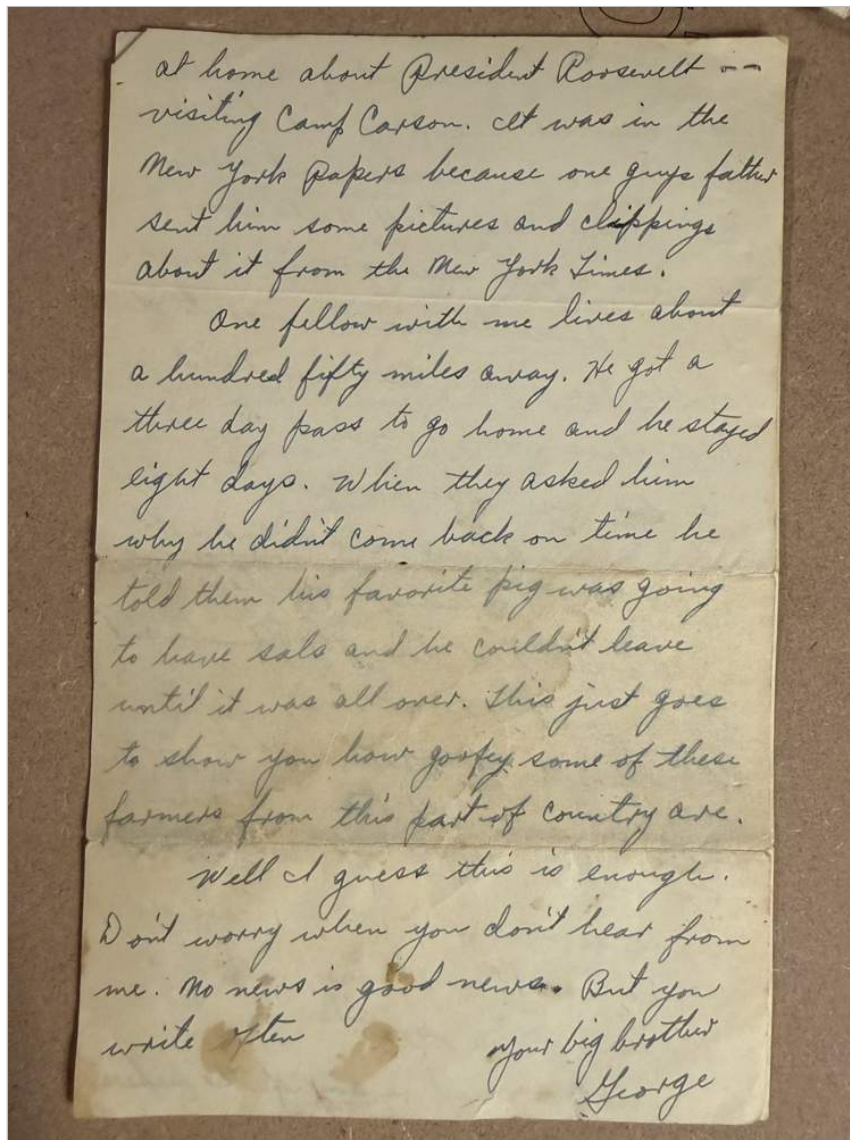 at home about President Roosevelt --
visiting Camp Carson. It was in the
New York Papers because one guys father
sent him some pictures and clippings
about it from the New York Times.
One fellow with me lives about
a hundred fifty miles away. He got a
three day pass to go home and he stayed
eight days. When they asked him
why he didn't come back on time he
told them his favorite pig was going
to have and he couldn't leave
until it was all over. This just goes
to show you how goofey some of these
farmers from this part of country are.
Well I guess this is enough.
Don't worry when you don't hear from
me. No news is good news. But you
write often
your big brother
George